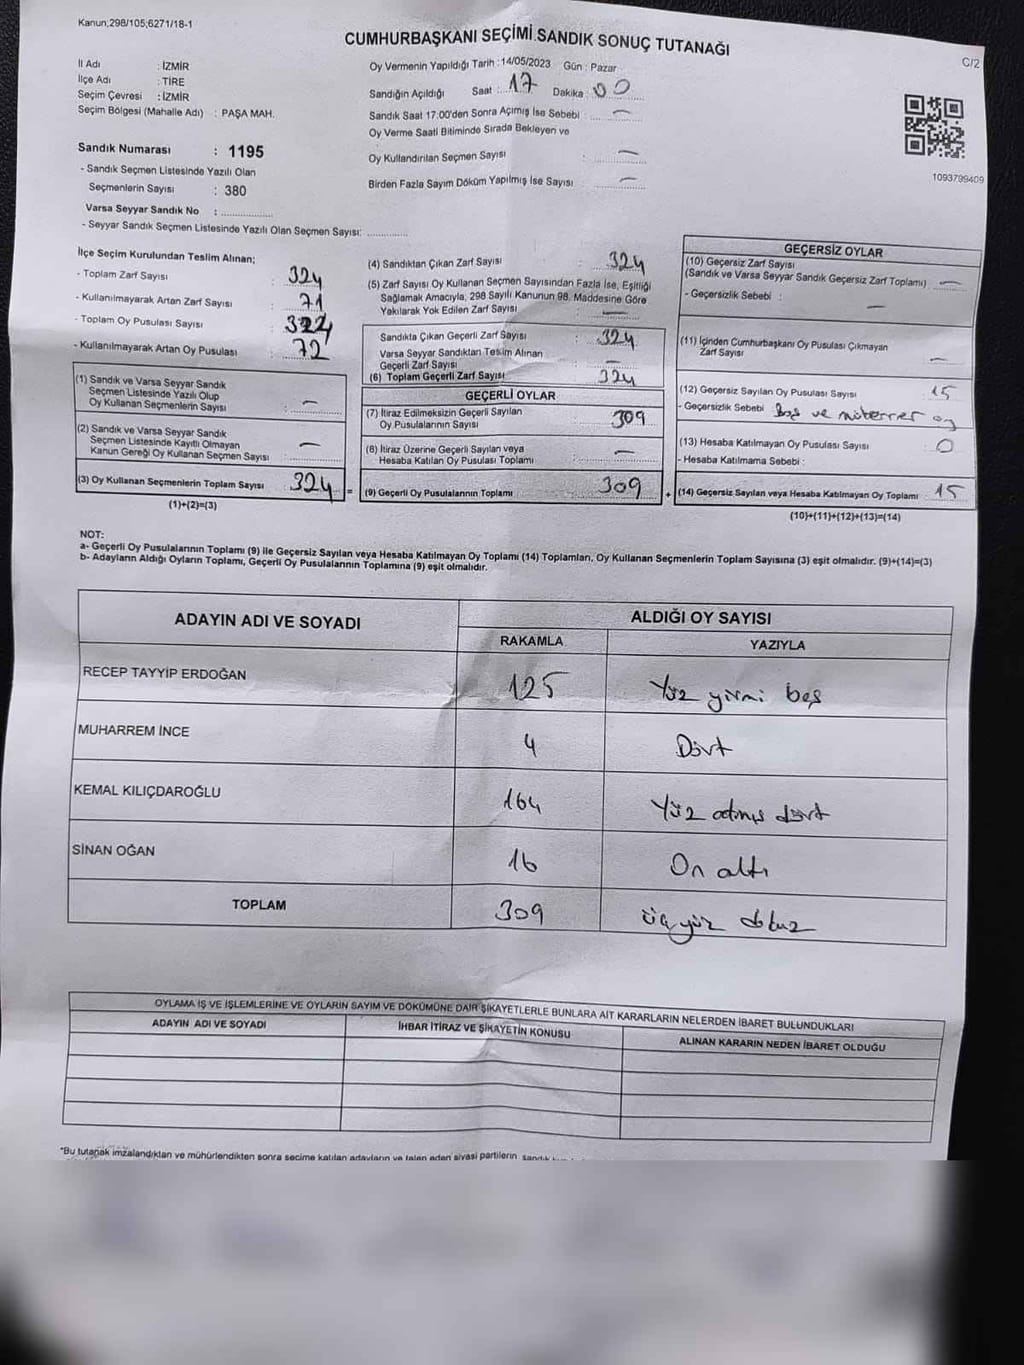 Kanun,298/105;6271/18-1
CUMHURBAŞKANI SEÇİMİ SANDIK SONUÇ TUTANAĞI
C/2
İl Adı : İZMİR
İlçe Adı : TİRE
Seçim Çevresi : İZMİR
Seçim Bölgesi (Mahalle Adı) : PAŞA MAH.
Sandık Numarası : 1195
- Sandık Seçmen Listesinde Yazılı Olan
Seçmenlerin Sayısı : 380
Varsa Seyyar Sandık No : ................
- Seyyar Sandık Seçmen Listesinde Yazılı Olan Seçmen Sayısı: ............
Oy Vermenin Yapıldığı Tarih : 14/05/2023 Gün : Pazar
Sandığın Açıldığı Saat : 17 Dakika : 00
Sandık Saat 17.00'den Sonra Açımış İse Sebebi : —
Oy Verme Saati Bitiminde Sırada Bekleyen ve
Oy Kullandırılan Seçmen Sayısı : —
Birden Fazla Sayım Döküm Yapılmış İse Sayısı : —
1093799409
İlçe Seçim Kurulundan Teslim Alınan;
- Toplam Zarf Sayısı : 324
- Kullanılmayarak Artan Zarf Sayısı : 71
- Toplam Oy Pusulası Sayısı : 322
- Kullanılmayarak Artan Oy Pusulası : 72
(1) Sandık ve Varsa Seyyar Sandık
Seçmen Listesinde Yazılı Olup
Oy Kullanan Seçmenlerin Sayısı : —
(2) Sandık ve Varsa Seyyar Sandık
Seçmen Listesinde Kayıtlı Olmayan
Kanun Gereği Oy Kullanan Seçmen Sayısı : —
(3) Oy Kullanan Seçmenlerin Toplam Sayısı 324 =
(1)+(2)=(3)
(4) Sandıktan Çıkan Zarf Sayısı : 324
(5) Zarf Sayısı Oy Kullanan Seçmen Sayısından Fazla İse, Eşitliği
Sağlamak Amacıyla, 298 Sayılı Kanunun 98. Maddesine Göre
Yakılarak Yok Edilen Zarf Sayısı : —
Sandıkta Çıkan Geçerli Zarf Sayısı : 324
Varsa Seyyar Sandıktan Teslim Alınan
Geçerli Zarf Sayısı : —
(6) Toplam Geçerli Zarf Sayısı 324
GEÇERLİ OYLAR
(7) İtiraz Edilmeksizin Geçerli Sayılan
Oy Pusulalarının Sayısı : 309
(8) İtiraz Üzerine Geçerli Sayılan veya
Hesaba Katılan Oy Pusulası Toplamı : —
(9) Geçerli Oy Pusulalarının Toplamı 309 +
GEÇERSİZ OYLAR
(10) Geçersiz Zarf Sayısı
(Sandık ve Varsa Seyyar Sandık Geçersiz Zarf Toplamı) —
- Geçersizlik Sebebi : —
(11) İçinden Cumhurbaşkanı Oy Pusulası Çıkmayan
Zarf Sayısı —
(12) Geçersiz Sayılan Oy Pusulası Sayısı : 15
- Geçersizlik Sebebi Boş ve müterrer oy
(13) Hesaba Katılmayan Oy Pusulası Sayısı : 0
- Hesaba Katılmama Sebebi :
(14) Geçersiz Sayılan veya Hesaba Katılmayan Oy Toplamı 15
(10)+(11)+(12)+(13)=(14)
NOT:
a- Geçerli Oy Pusulalarının Toplamı (9) ile Geçersiz Sayılan veya Hesaba Katılmayan Oy Toplamı (14) Toplamları, Oy Kullanan Seçmenlerin Toplam Sayısına (3) eşit olmalıdır. (9)+(14)=(3)
b- Adayların Aldığı Oyların Toplamı, Geçerli Oy Pusulalarının Toplamına (9) eşit olmalıdır.
ADAYIN ADI VE SOYADI
ALDIĞI OY SAYISI
RAKAMLA YAZIYLA
RECEP TAYYİP ERDOĞAN 125 Yüz yirmi beş
MUHARREM İNCE 4 Dört
KEMAL KILIÇDAROĞLU 164 Yüz altmış dört
SİNAN OĞAN 16 On altı
TOPLAM 309 üç yüz dokuz
OYLAMA İŞ VE İŞLEMLERİNE VE OYLARIN SAYIM VE DÖKÜMÜNE DAİR ŞİKAYETLERLE BUNLARA AİT KARARLARIN NELERDEN İBARET BULUNDUKLARI
ADAYIN ADI VE SOYADI İHBAR İTİRAZ VE ŞİKAYETİN KONUSU ALINAN KARARIN NEDEN İBARET OLDUĞU
*Bu tutanak imzalandıktan ve mühürlendikten sonra seçime katılan adayların ve talep eden siyasi partilerin